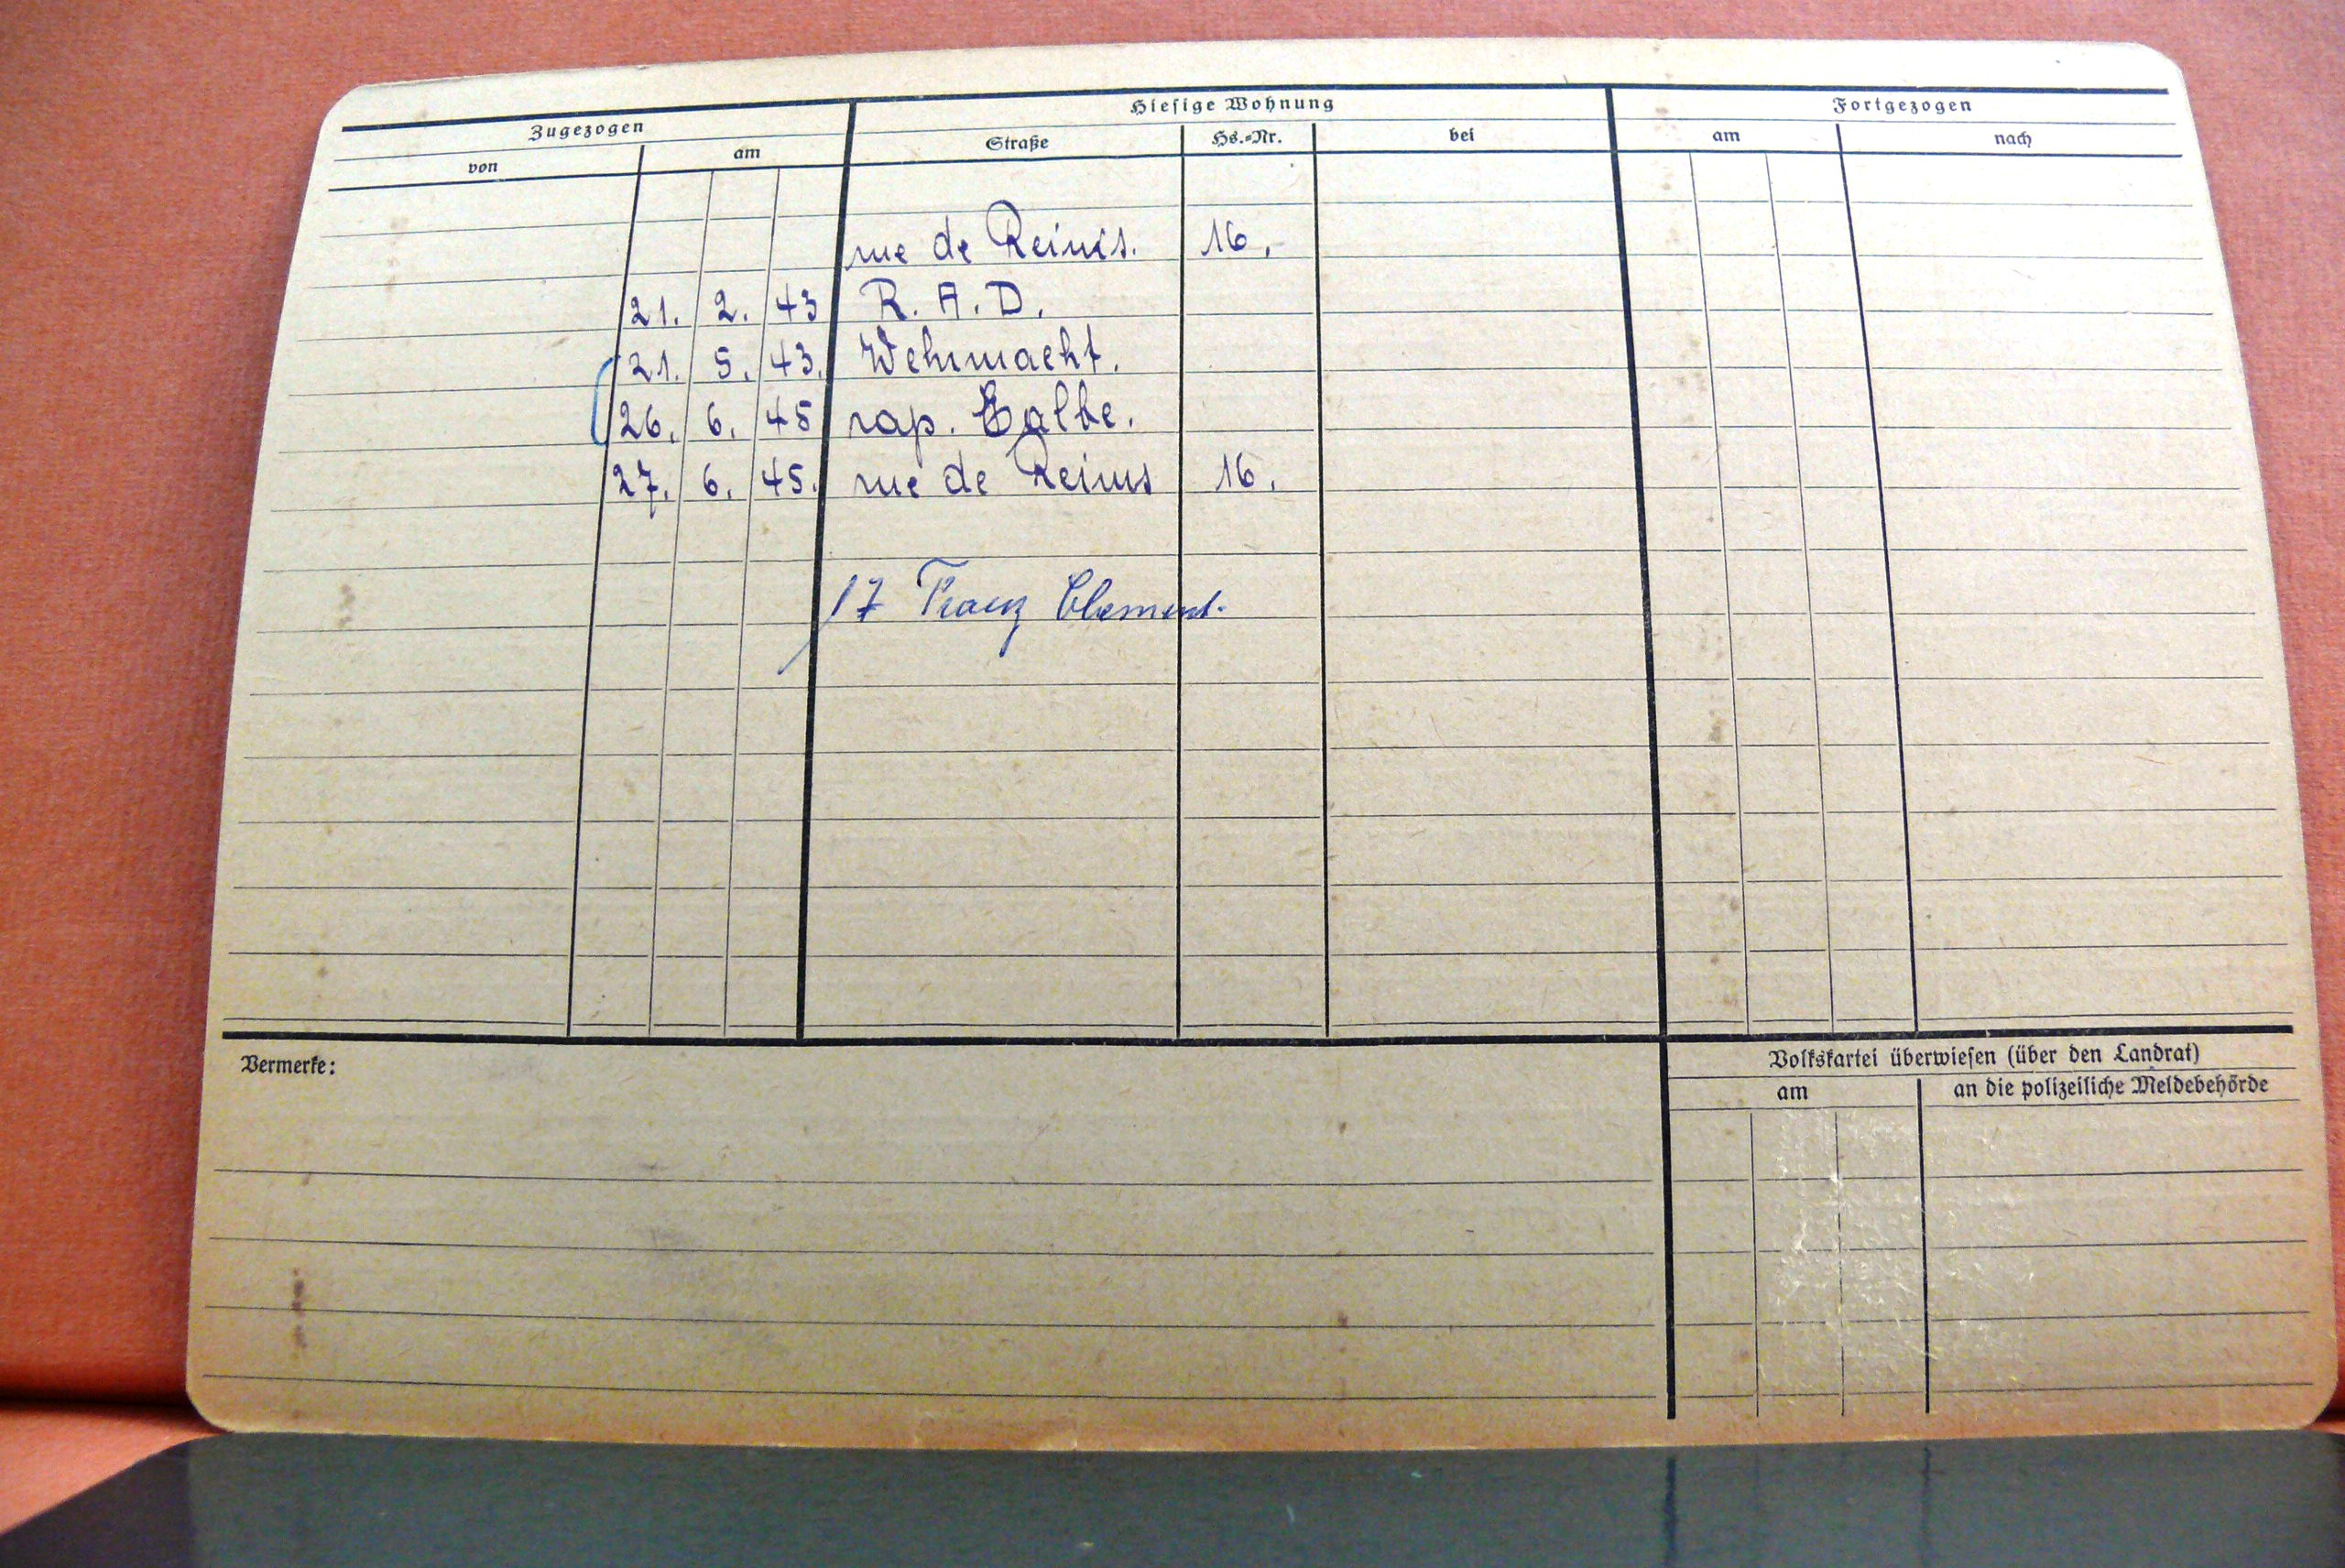 Zugezogen Hiesige Wohnung Fortgezogen
von am Straße Hs.-Nr. bei am nach
rue de Reims. 16.
21. 2. 43 R. A. D.
21. 5. 43. Wehrmacht.
26. 6. 45 rap.
27. 6. 45. rue de Reims 16.
17 Clement.
Vermerke:
Volkskartei überwiesen (über den Landrat)
am an die polizeiliche Meldebehörde